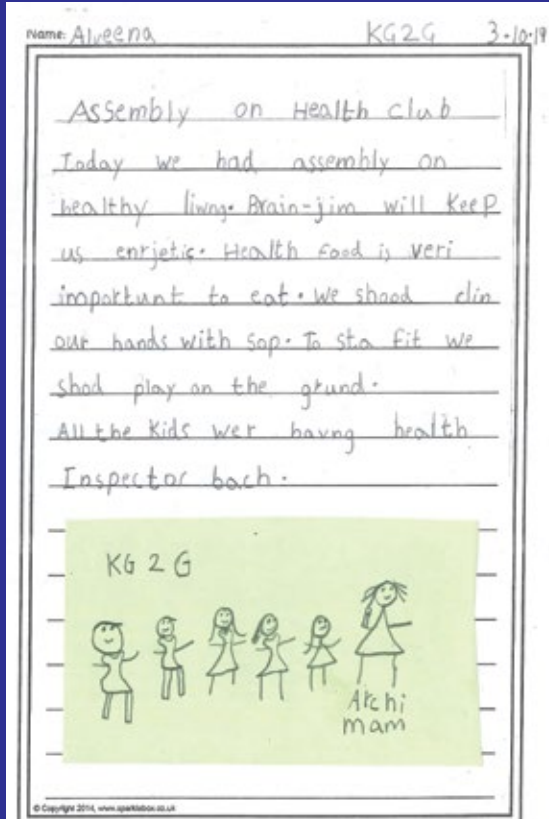 Name: Alveena KG2G 3.10.19
Assembly on Health club
Today we had assembly on
healthy livng. Brain-jim will keep
us enrjetic. Health Food is veri
importunt to eat. We shood clin
our hands with sop. To sta fit we
shod play on the grund.
All the kids wer havng health
Inspector bach.
KG 2 G
Archi
mam
© Copyright 2014, www.sparklebox.co.uk